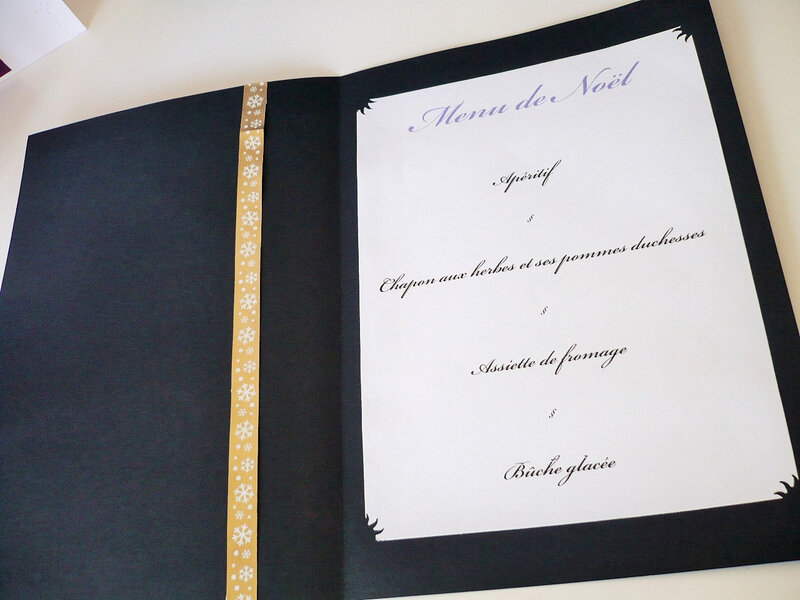 Menu de Noël
Apéritif
§
Chapon aux herbes et ses pommes duchesses
§
Assiette de fromage
§
Bûche glacée